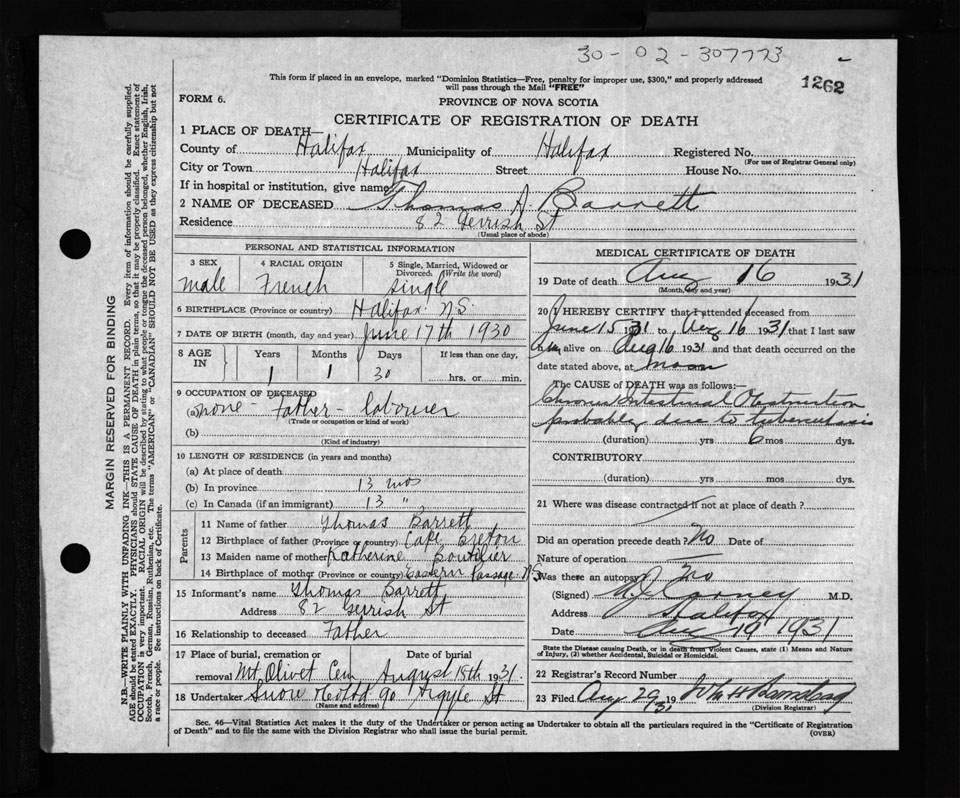 30-02-307773
1262
This form if placed in an envelope, marked "Dominion Statistics—Free, penalty for improper use, $300," and properly addressed
will pass through the Mail "FREE"
FORM 6.
PROVINCE OF NOVA SCOTIA
CERTIFICATE OF REGISTRATION OF DEATH
1 PLACE OF DEATH—
County of Halifax Municipality of Halifax Registered No.
(For use of Registrar General only)
City or Town Halifax Street House No.
If in hospital or institution, give name
2 NAME OF DECEASED Thomas A. Barrett
Residence 82 Gerrish St
(Usual place of abode)
PERSONAL AND STATISTICAL INFORMATION
3 SEX 4 RACIAL ORIGIN 5 Single, Married, Widowed or
Divorced. (Write the word)
male French single
6 BIRTHPLACE (Province or country) Halifax N.S.
7 DATE OF BIRTH (month, day and year) June 17th 1930
8 AGE IN Years Months Days If less than one day,
1 1 30 hrs. or min.
9 OCCUPATION OF DECEASED
(a) none - Father - labourer
(Trade or occupation or kind of work)
(b)
(Kind of industry)
10 LENGTH OF RESIDENCE (in years and months)
(a) At place of death
(b) In province 13 mos
(c) In Canada (if an immigrant) 13 "
Parents
11 Name of father Thomas Barrett
12 Birthplace of father (Province or country) Cape Breton
13 Maiden name of mother Katherine Boutilier
14 Birthplace of mother (Province or country) Eastern Passage N.S.
15 Informant's name Thomas Barrett
Address 82 Gerrish St
16 Relationship to deceased Father
17 Place of burial, cremation or Date of burial
removal Mt Olivet Cem August 18th 1931
18 Undertaker Snow & Co Ltd 90 Argyle St
(Name and address)
MEDICAL CERTIFICATE OF DEATH
19 Date of death Aug 16 1931
(Month, day and year)
20 I HEREBY CERTIFY that I attended deceased from
June 15 1931 to Aug 16 1931 that I last saw
him alive on Aug 16 1931 and that death occurred on the
date stated above, at noon
The CAUSE OF DEATH was as follows:—
Chronic Intestinal Obstruction
probably due to tuberculosis
(duration) yrs 6 mos dys.
CONTRIBUTORY
(duration) yrs. mos. dys.
21 Where was disease contracted if not at place of death?
Did an operation precede death? No Date of
Nature of operation
Was there an autopsy No
(Signed) Carney M.D.
Address Halifax
Date Aug 19 1931
State the Disease causing Death, or in death from Violent Causes, state (1) Means and Nature
of Injury, (2) whether Accidental, Suicidal or Homicidal.
22 Registrar's Record Number
23 Filed Aug 29 1931
(Division Registrar)
Sec. 46—Vital Statistics Act makes it the duty of the Undertaker or person acting as Undertaker to obtain all the particulars required in the "Certificate of Registration
of Death" and to file the same with the Division Registrar who shall issue the burial permit.
(OVER)
MARGIN RESERVED FOR BINDING
N.B.—WRITE PLAINLY WITH UNFADING INK—THIS IS A PERMANENT RECORD. Every item of information should be carefully supplied.
AGE should be stated EXACTLY. PHYSICIANS should STATE CAUSE OF DEATH in plain terms, so that it may be properly classified. Exact statement of
OCCUPATION is very important. RACIAL ORIGIN will be described by stating to what people or tongue the deceased person belonged, whether English, Irish,
Scotch, French, German, Russian, Ruthenian, etc. The terms "AMERICAN" or "CANADIAN" SHOULD NOT BE USED as they express citizenship but not
a race or people. See instructions on back of Certificate.